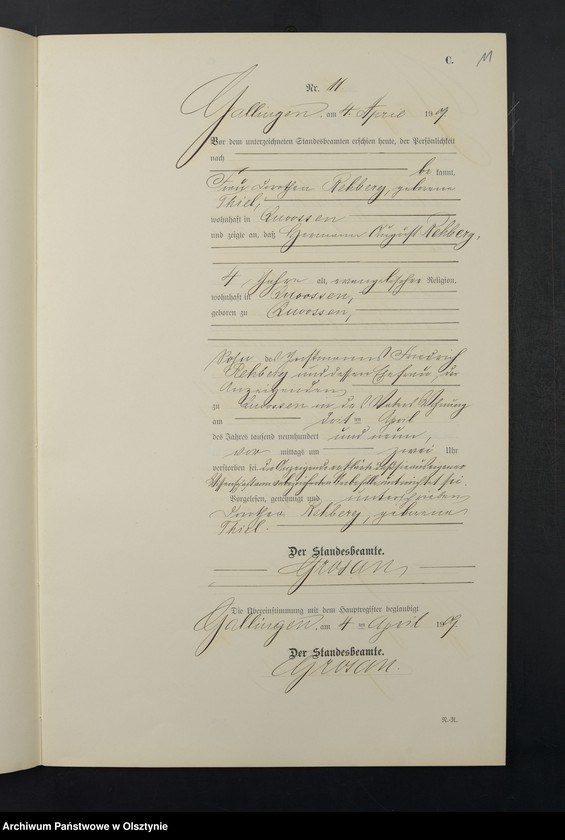 C.
11
Nr. 11
Gallingen am 4. April 1909
Vor dem unterzeichneten Standesbeamten erschien heute, der Persönlichkeit
nach
be kannt,
Frau Dorothea Rehberg, geborene
Thiel,
wohnhaft in Quossen
und zeigte an, daß Hermann August Rehberg,
4 Jahre alt, evangelischer Religion,
wohnhaft in Quossen,
geboren zu Quossen,
Sohn des Instmannes Friedrich
Rehberg und dessen Ehefrau, der
Anzeigenden
zu Quossen in des Vaters Wohnung
am April
des Jahres tausend neunhundert und neun,
vor mittags um zwei Uhr
verstorben sei. Die Anzeigende erklärte, daß sie aus eigener
Wissenschaft von unterrichtet sei.
Vorgelesen, genehmigt und unterschrieben
Dorothea Rehberg, geborene
Thiel.
Der Standesbeamte.
Grosan
Die Übereinstimmung mit dem Hauptregister beglaubigt
Gallingen, am 4 ten April 1909
Der Standesbeamte.
Grosan.
N.-R.
Archiwum Państwowe w Olsztynie